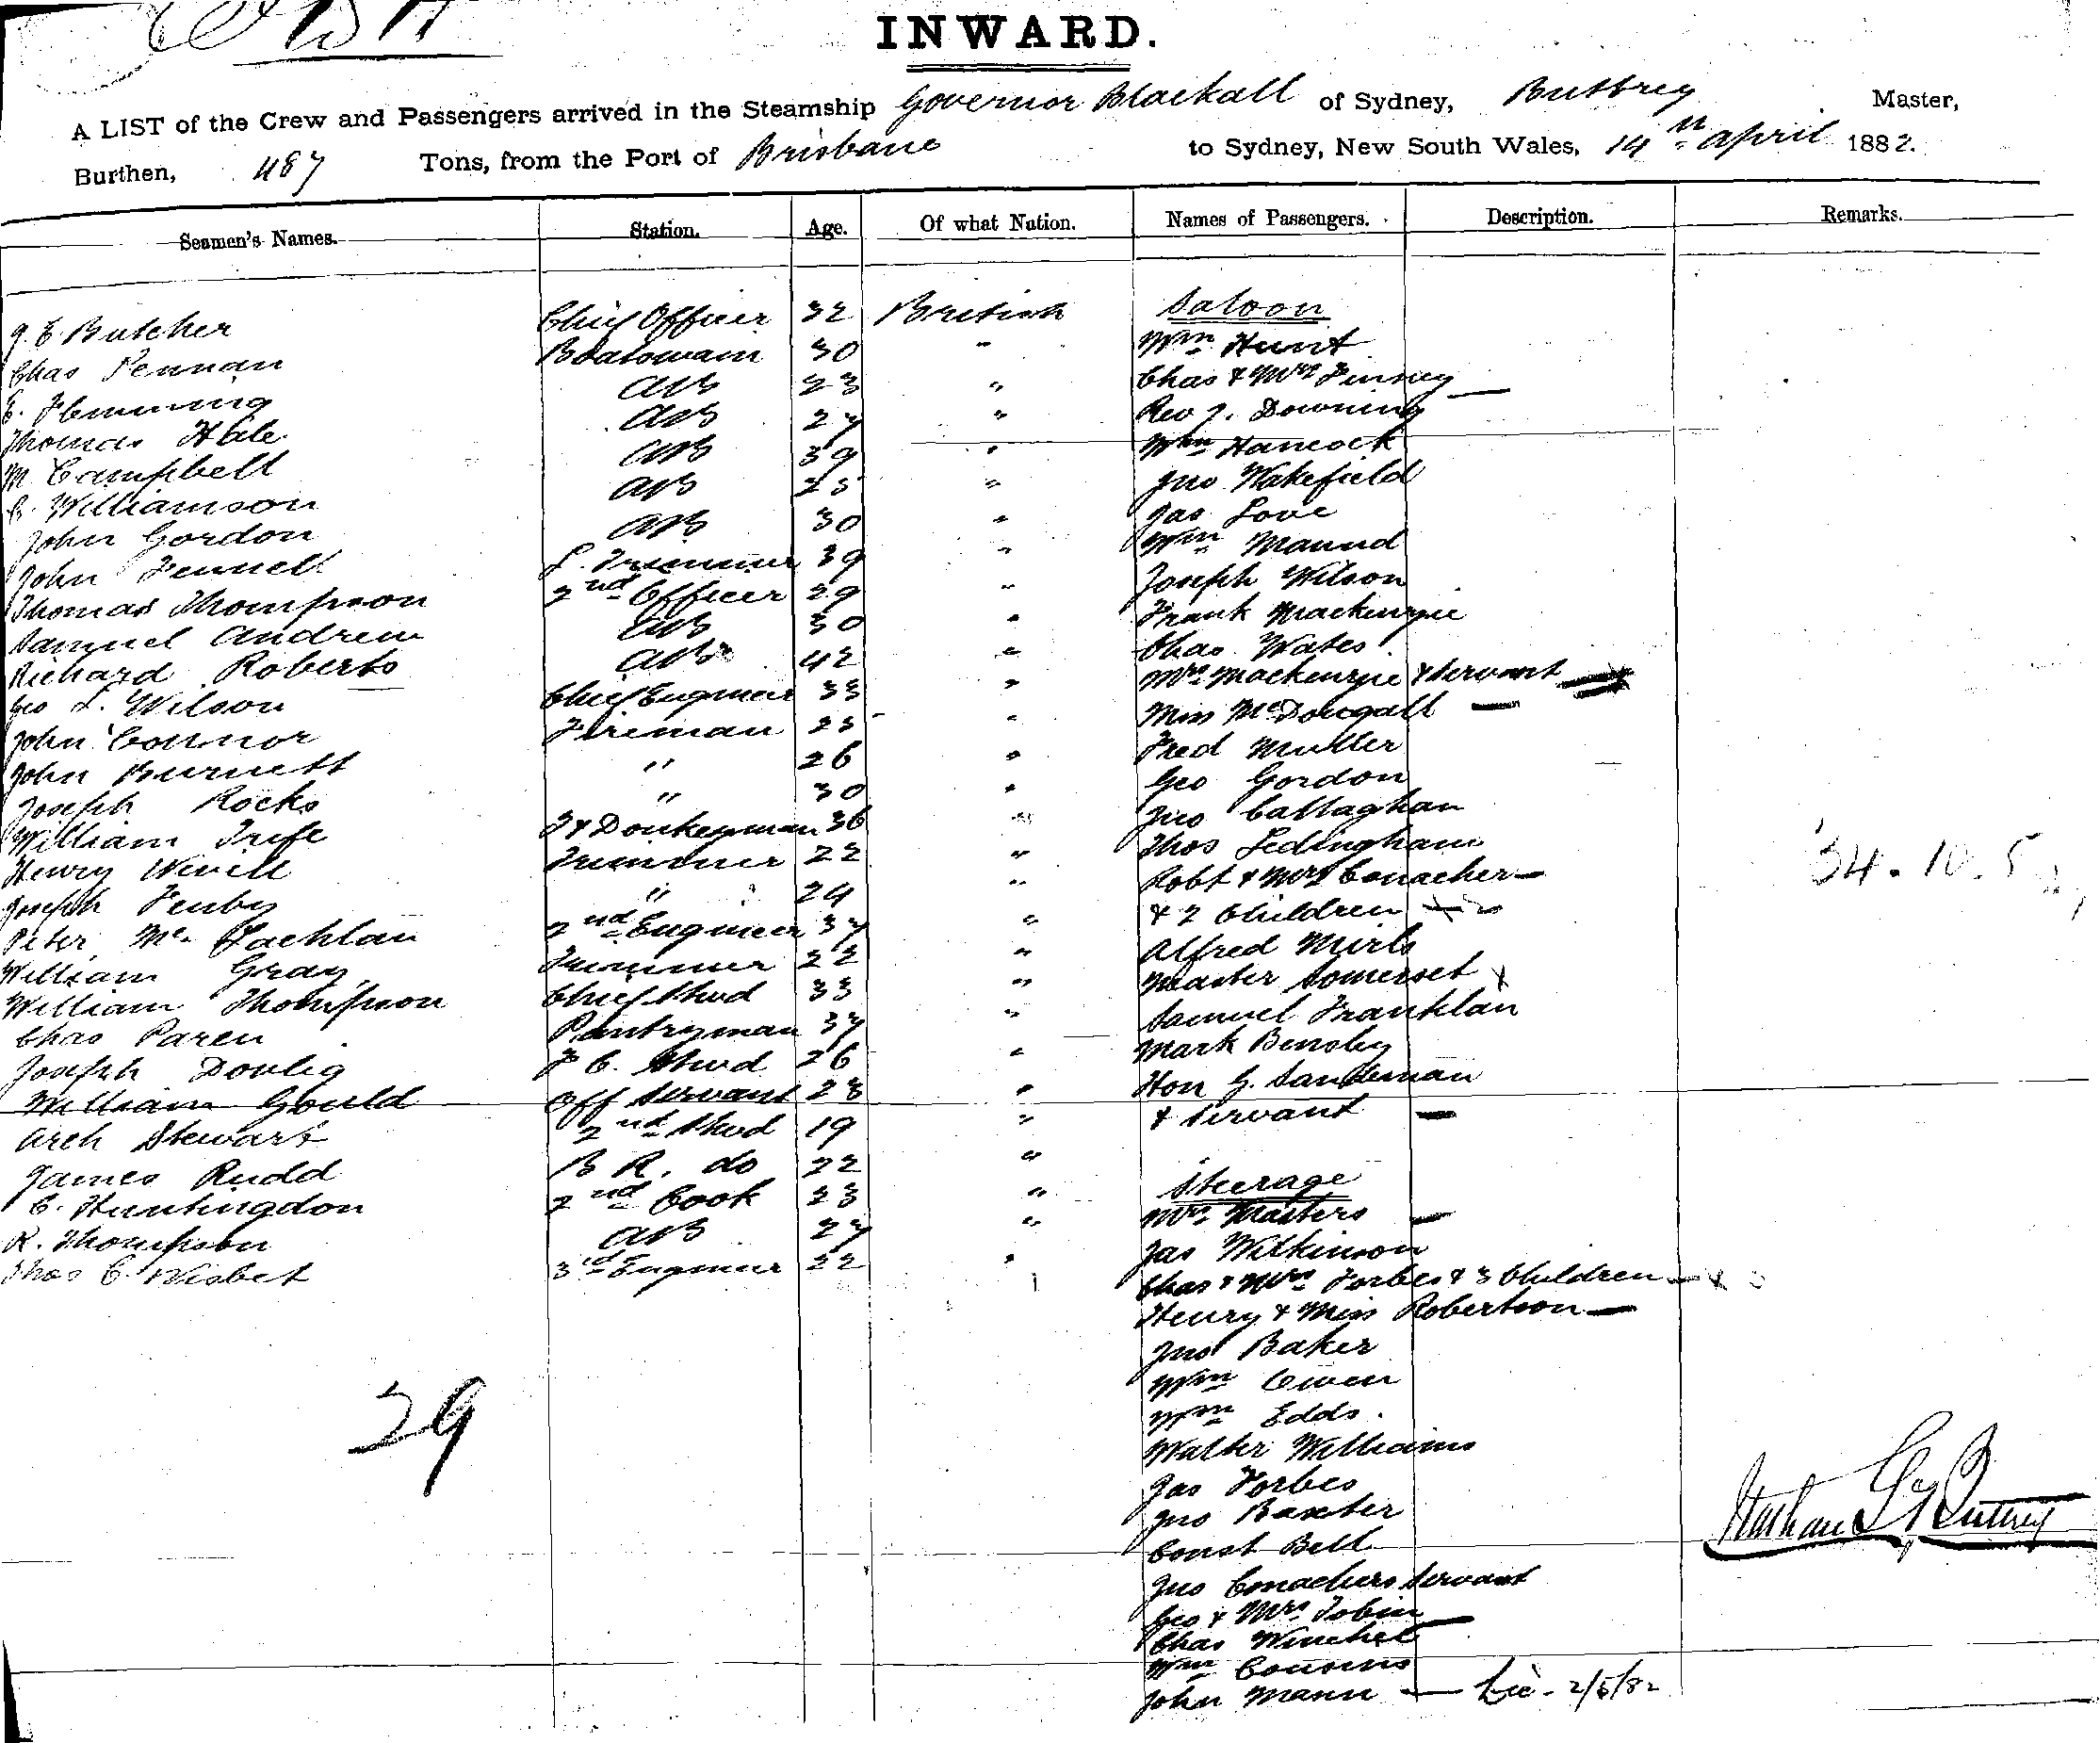 INWARD.
A LIST of the Crew and Passengers arrived in the Steamship Governor Blackall of Sydney, Buttrey Master,
Burthen, 487 Tons, from the Port of Brisbane to Sydney, New South Wales, 14th April 1882.
Seamen's Names. Station. Age. Of what Nation. Names of Passengers. Description. Remarks.
Saloon
G. E. Butcher Chief Officer 32 British Wm Hunt
Chas Pennan Boatswain 30 " Chas & Mrs
E. Flemming AB 23 " Rev J. Downing
Thomas Hale AB 27 " Wm Hancock
M Campbell AB 39 " Jno Wakefield
C. Williamson AB 25 " Jas Love
John Gordon AB 30 " Wm Maund
John Fennell L. Trimmer 39 " Joseph Wilson
Thomas Thompson 2nd Officer 29 " Frank Mackenzie
Samuel Andrew AB 30 " Chas Wates
Richard Roberts AB 42 " Mrs Mackenzie & Servant
Geo L. Wilson Chief Engineer 33 " Miss McDougall
John Connor Fireman 25 " Fred Muller
John Burnett " 26 " Geo Gordon
Joseph Rocks " 30 " Jno Callaghan
William Tripe F & Donkeyman 36 " Thos Ledingham
Henry Wevill Trimmer 22 " Robt & Mrs Conacher
Joseph Fenby " 24 " & 2 Children
Peter McLachlan 2nd Engineer 37 " Alfred Mirls
William Gray Trimmer 22 " Master Somerset
William Thompson Chief Stwd 33 " Samuel Franklan
Chas Paren Pantryman 37 " Mark Bensley
Joseph F C. Stwd 26 " Hon G. Sandeman
William Gould Off Servant 23 " & Servant
Arch Stewart 2nd Stwd 19 "
James Rudd B R. do 22 " Steerage
C. Huntingdon 2nd Cook 23 " Mrs Masters
R. Thompson AB 27 " Jas Wilkinson
Thos C. Nisbet 3rd Engineer 22 " Chas & Mrs Forbes & 3 Children
Henry & Miss Robertson
Jno Baker
Wm Owen
Wm Edds.
Walter Williams
Jas Forbes
Jno Baxter
Const Bell
Jno Conachers Servant
Geo & Mrs Tobin
Chas Winchel
Wm Cousins
John Mann 2/5/82
34.10.5
29